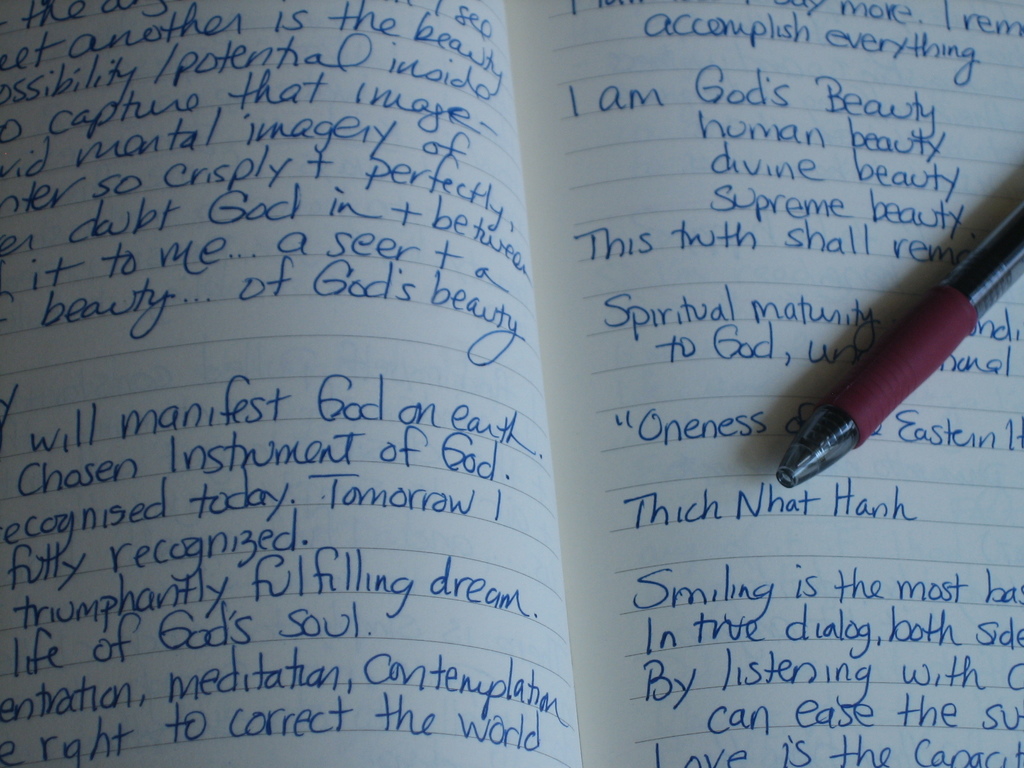 I see
another is the beauty
/potential inside
capture, that image-
mental imagery of
so crisply + perfectly,
doubt God in + between
it to me... a seer + a
beauty... of God's beauty
will manifest God on earth.
Chosen Instrument of God.
ecognised today. Tomorrow I
fully recognized.
triumphantly fulfilling dream.
life of God's soul.
entration, meditation, Contemplation
right to correct the world
more. I rem
accomplish everything
I am God's Beauty
human beauty
divine beauty
supreme beauty.
This truth shall rema
Spiritual maturity
to God,
"Oneness Eastern
Thich Nhat Hanh
Smiling is the most bas
In true dialog, both side
By listening with C
can ease the su
Love is the Capacit